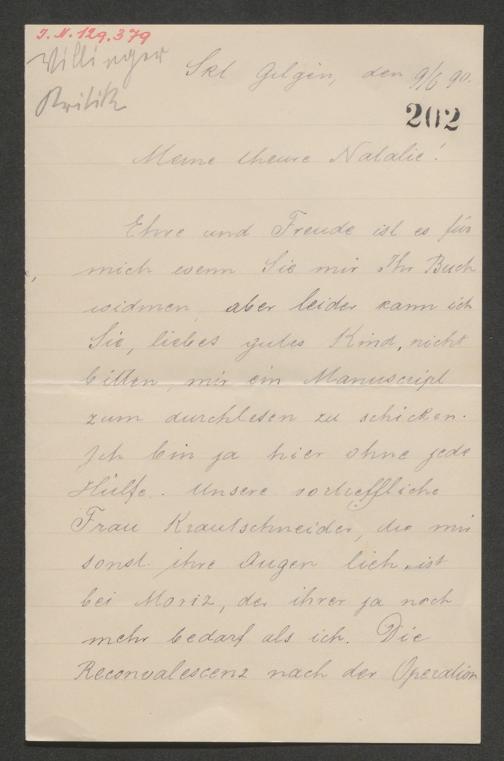 J. N. 129.379
Villinger
Kritik
Skt Gilgen, den 9/6 90.
202
Meine theure Natalie!
Ehre und Freude ist es für
mich wenn Sie mir Ihr Buch
widmen, aber leider kann ich
Sie, liebes gutes Kind, nicht
bitten, mir ein Manuscript
zum durchlesen zu schicken.
Ich bin ja hier ohne jede
Hülfe. Unsere vortreffliche
Frau Krautschneider, die mir
sonst ihre Augen lieh, ist
bei Moriz, der ihrer ja noch
mehr bedarf als ich. Die
Reconvalescenz nach der Operation